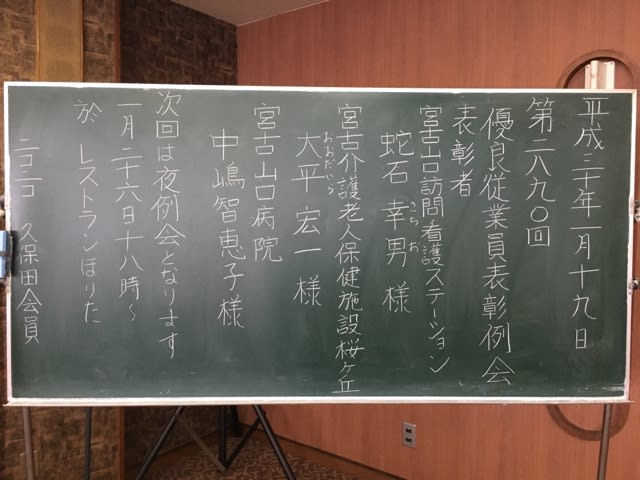 平成三十年一月十九日
第二八九〇回
優良従業員表彰例会
表彰者
宮古山口訪問看護ステーション
蛇石幸男様
さちお
宮古介護老人保健施設桜ヶ丘
大平宏一様
おおだいら
宮古山口病院
中嶋智恵子様
次回は夜例会となります
一月二十六日十八時～
於 レストランほりた
ニコニコ 久保田会員